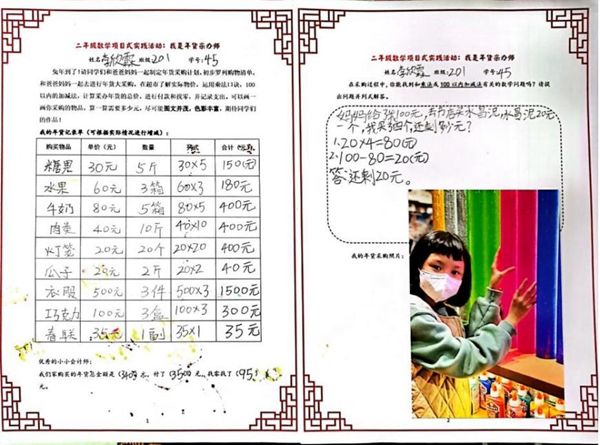 二年级数学项目式实践活动：我是年货采办师
姓名 李欣霖 班级 201 学号 45
兔年到了！请同学们和爸爸妈妈一起制定年货采购计划，初步罗列购物清单，
和爸爸妈妈一起去进行年货大采购，在超市了解实际物价，运用乘法口诀，100
以内的加减法，计算采办年货的总价，进行付款和找零，并记录支出，可以画一
画你采购的物品，算一算需要多少元，尽可能图文并茂，色彩丰富，期待同学们
的作品！
我的年货记录单（可根据实际情况进行增减）：
购买物品 单价（元） 数量 列式 合计（元）
糖果 30元 5斤 30×5 150元
水果 60元 3箱 60×3 180元
牛奶 80元 5箱 80×5 400元
肉类 40元 10斤 40×10 400元
灯笼 20元 20个 20×20 400元
瓜子 20元 2斤 20×2 40元
衣服 500元 3件 500×3 1500元
巧克力 100元 3盒 100×3 300元
春联 35元 1副 35×1 35元
优秀的小小会计师：
我们家购买的年货总金额是 3405 元，付了 3500 元，找零找了 95
元。
1
二年级数学项目式实践活动：我是年货采办师
姓名 李欣霖 班级 201 学号 45
在采购过程中，你能找到和乘法或100以内加减法有关的数学问题吗？请提
出问题并列式解答。
妈妈给了我100元，去书店买水晶泥，水晶泥20元
一个，我买了4个，还剩多少元？
1.20×4=80(元)
2.100-80=20(元)
答：还剩20元。
我的年货采购照片：
2